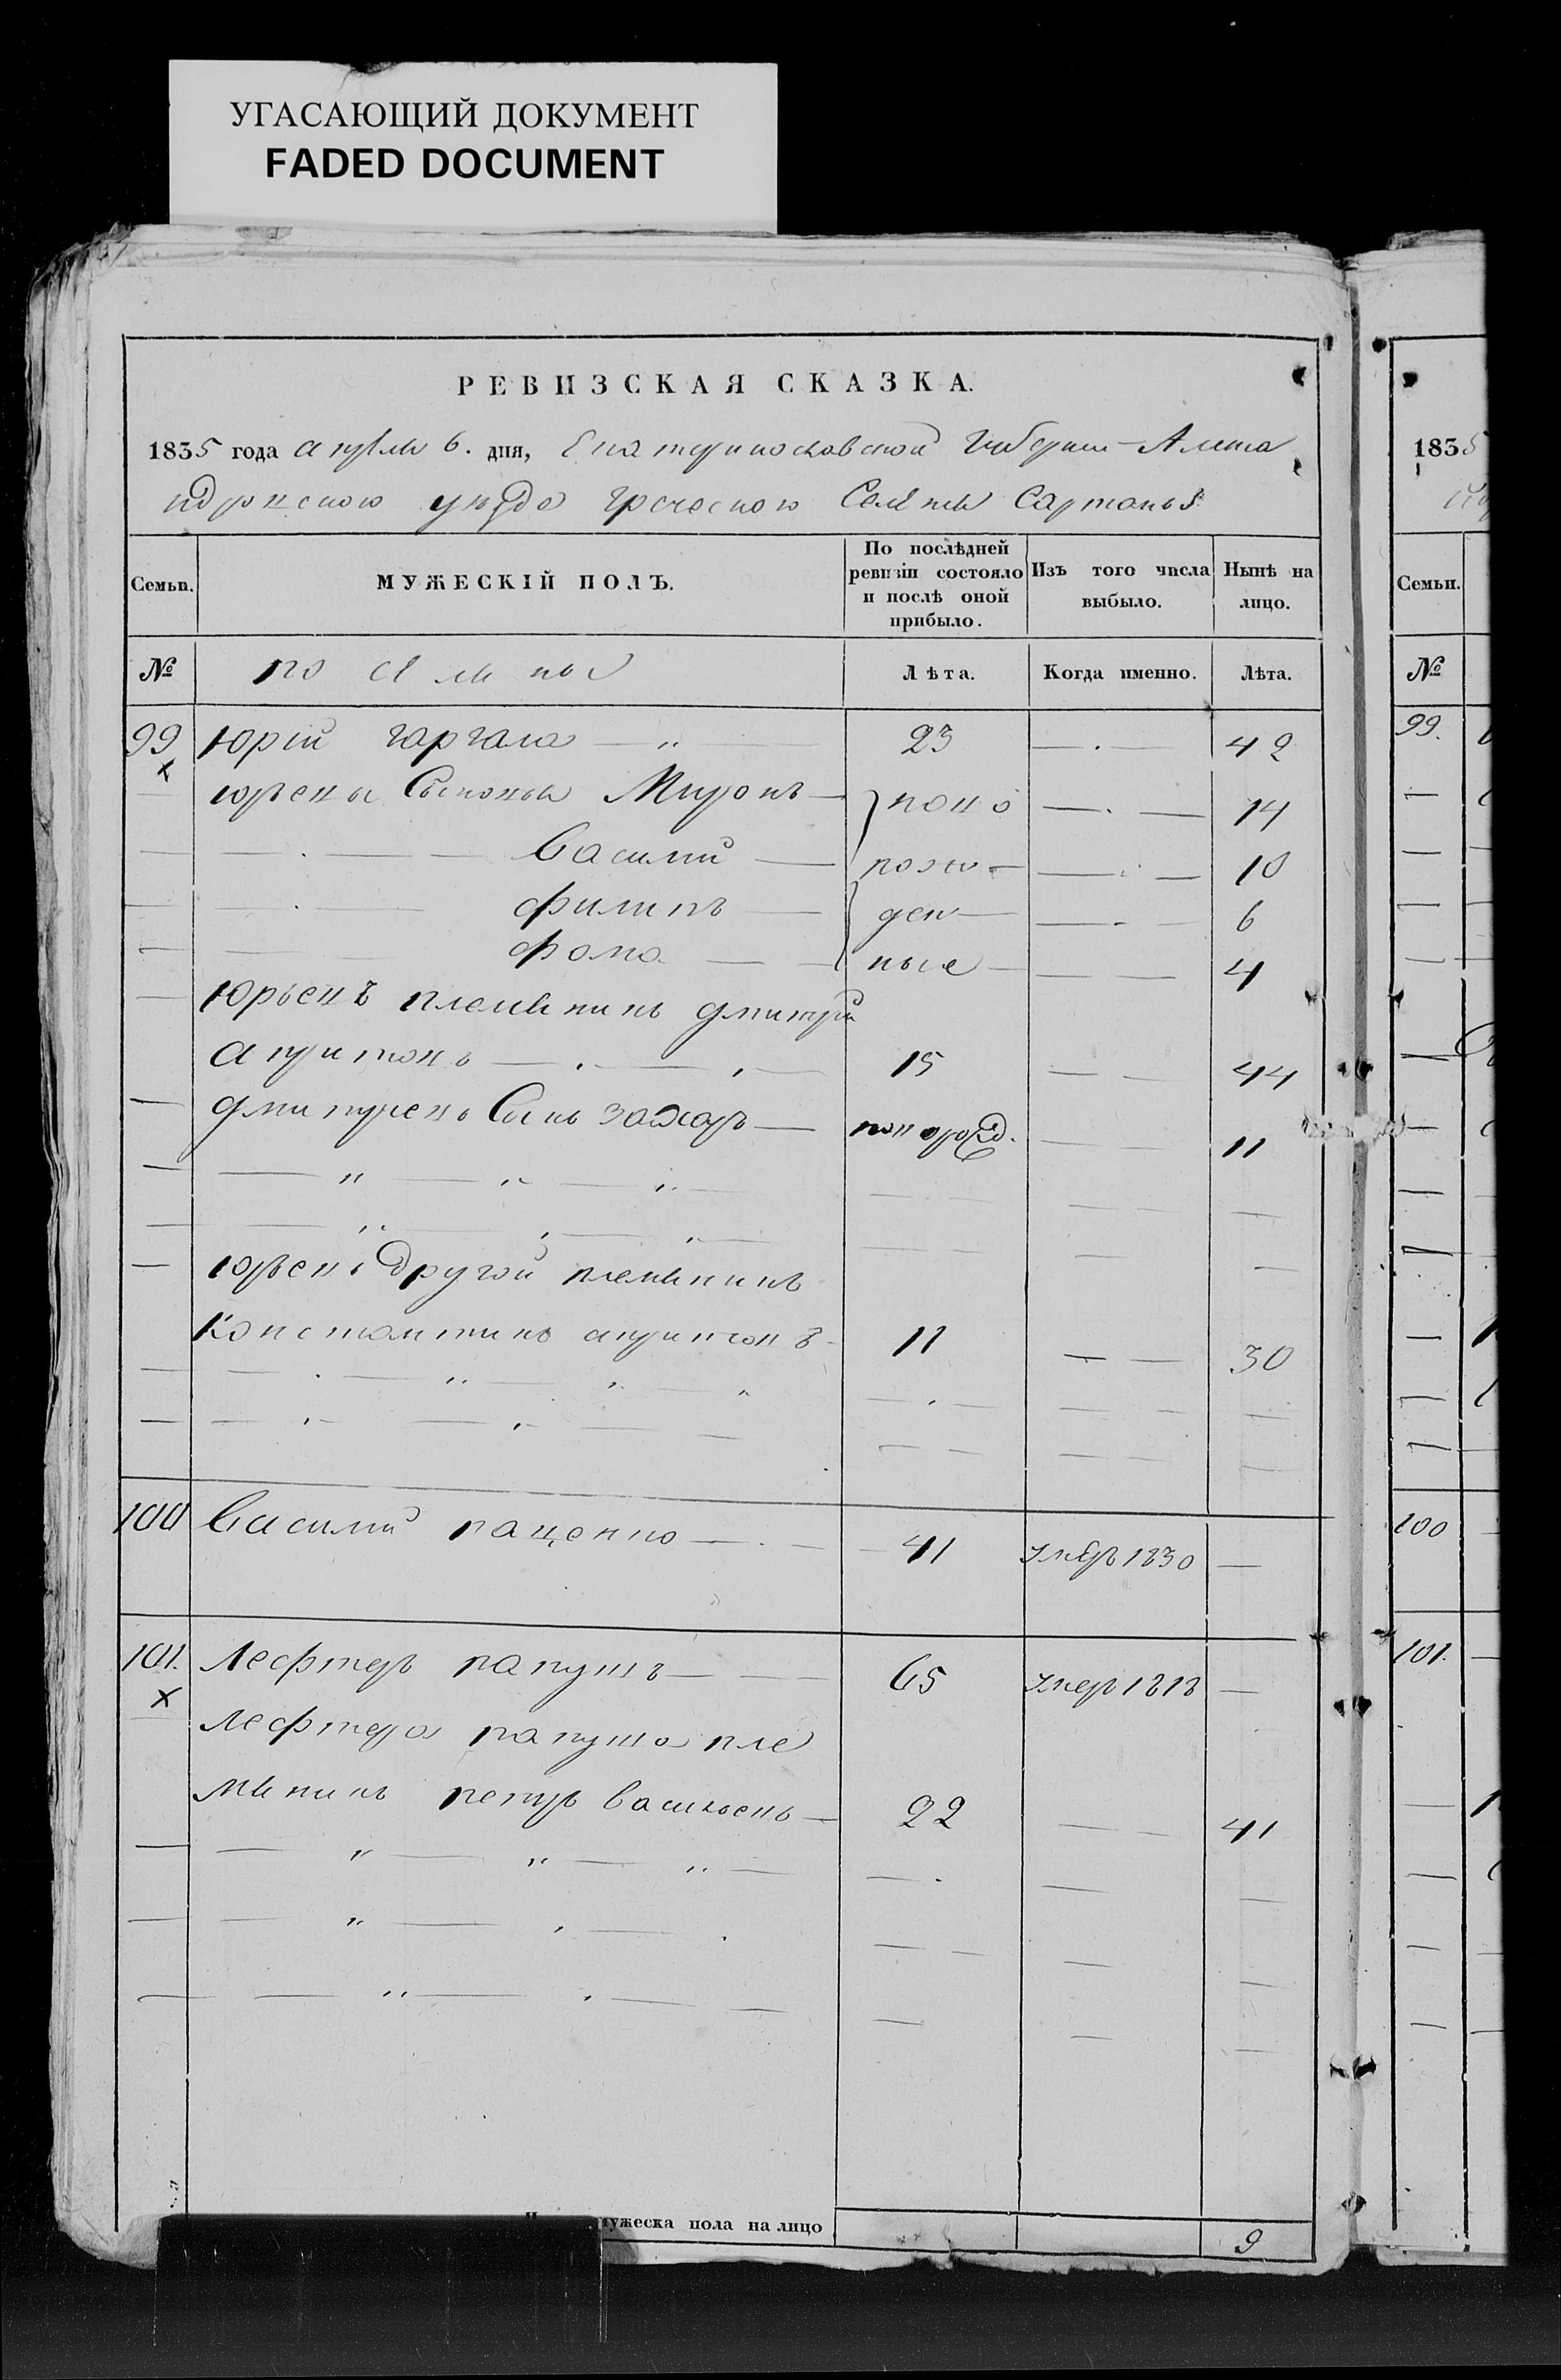 УГАСАЮЩИЙ ДОКУМЕНТ
FADED DOCUMENT
РЕВИЗСКАЯ СКАЗКА.
1835 года апреля 6. дня, Екатеринославской Губернии Алекса
ндровского уезда греческого Селения Сартаны
Семьи. МУЖЕСКІЙ ПОЛЪ. По послѣдней ревизіи состояло и послѣ оной прибыло. Изъ того числа выбыло. Нынѣ на лицо.
№ поселяне Лѣта. Когда именно. Лѣта.
99 Юрій гаргала 23 42
юрьевы Сыновья Миронъ ново 14
Василий рож 10
филипъ ден 6
фома ные 4
Юрьевъ племянникъ дмитрий
15 44
дмитриевъ Сынъ захаръ новорожд. 11
юрьевъ другой племянникъ
Константинъ 11 30
100 Василий 41 умеръ 1830
101. Лефтеръ папушъ 65 умеръ 1818
Лефтера папуша пле
мянникъ петръ васильевъ 22 41
мужеска пола на лицо 9
1835
Семьи.
№
99.
100
101.